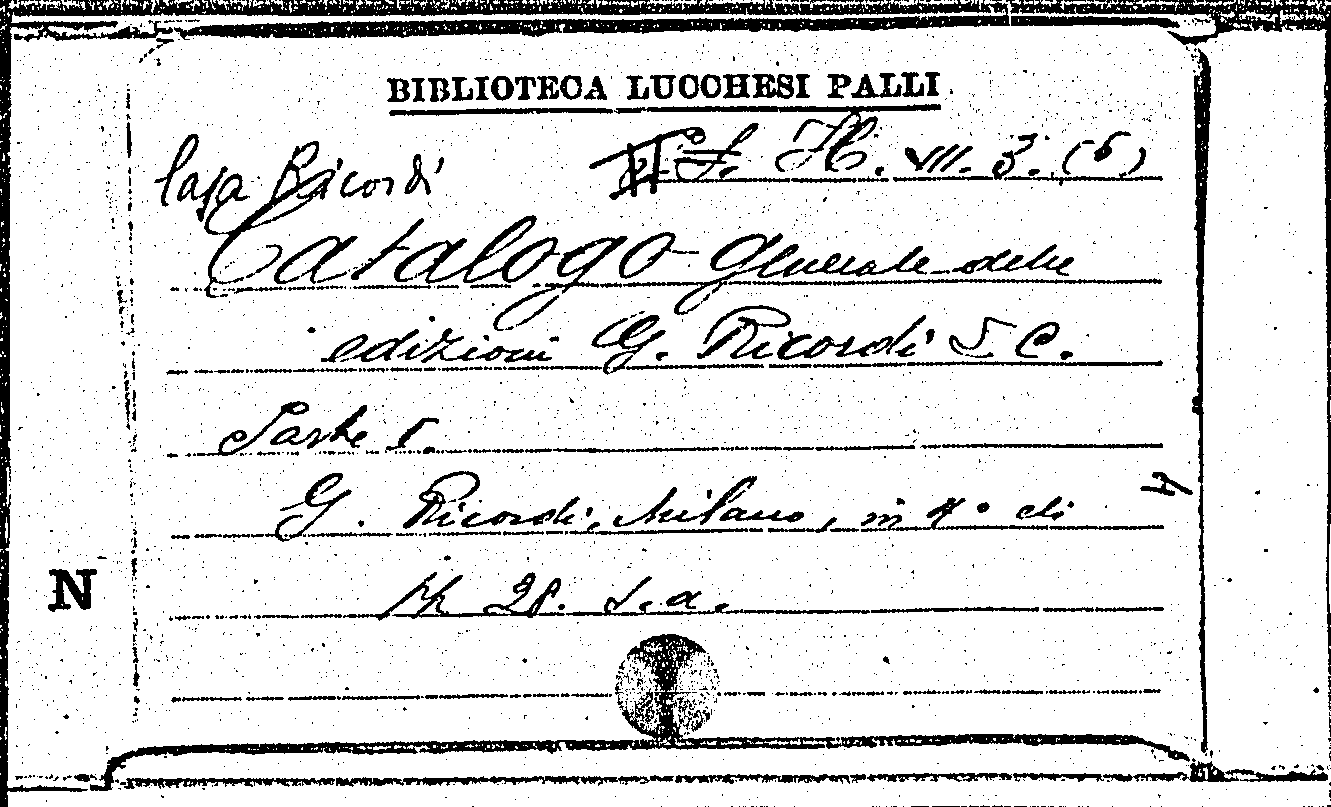 BIBLIOTECA LUCCHESI PALLI
Casa Ricordi H. VII. 3. (6)
Catalogo Generale delle
edizioni G. Ricordi & C.
Parte I.
G. Ricordi, Milano, in 4° di
pp 28. s.a.
N